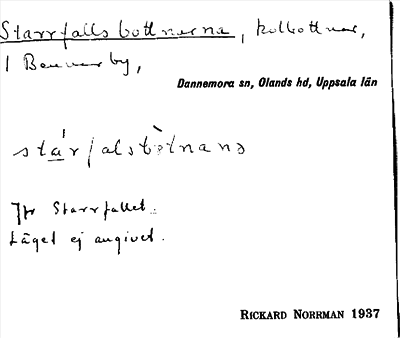 Starrfallsbottnarna, kolbottnar,
i Bennarby,
Dannemora sn, Olands hd, Uppsala län
stárfalsbòtnanə
Jfr Starrfallet.
Läget ej angivet.
RICKARD NORRMAN 1937